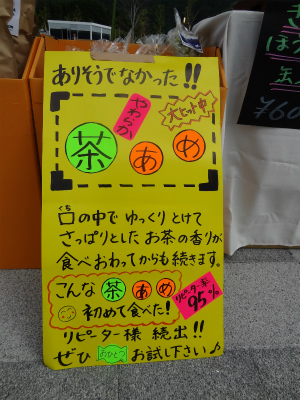 ありそうでなかった!!
やわらか
大ヒット中
茶あめ
口の中で ゆっくり とけて
くち
さっぱりとした お茶の香りが
食べおわってからも続きます。
こんな 茶あめ
初めて食べた!
リピーター率
95%
リピーター様 続出!!
ぜひ おひとつ お試し下さい♪
¥60